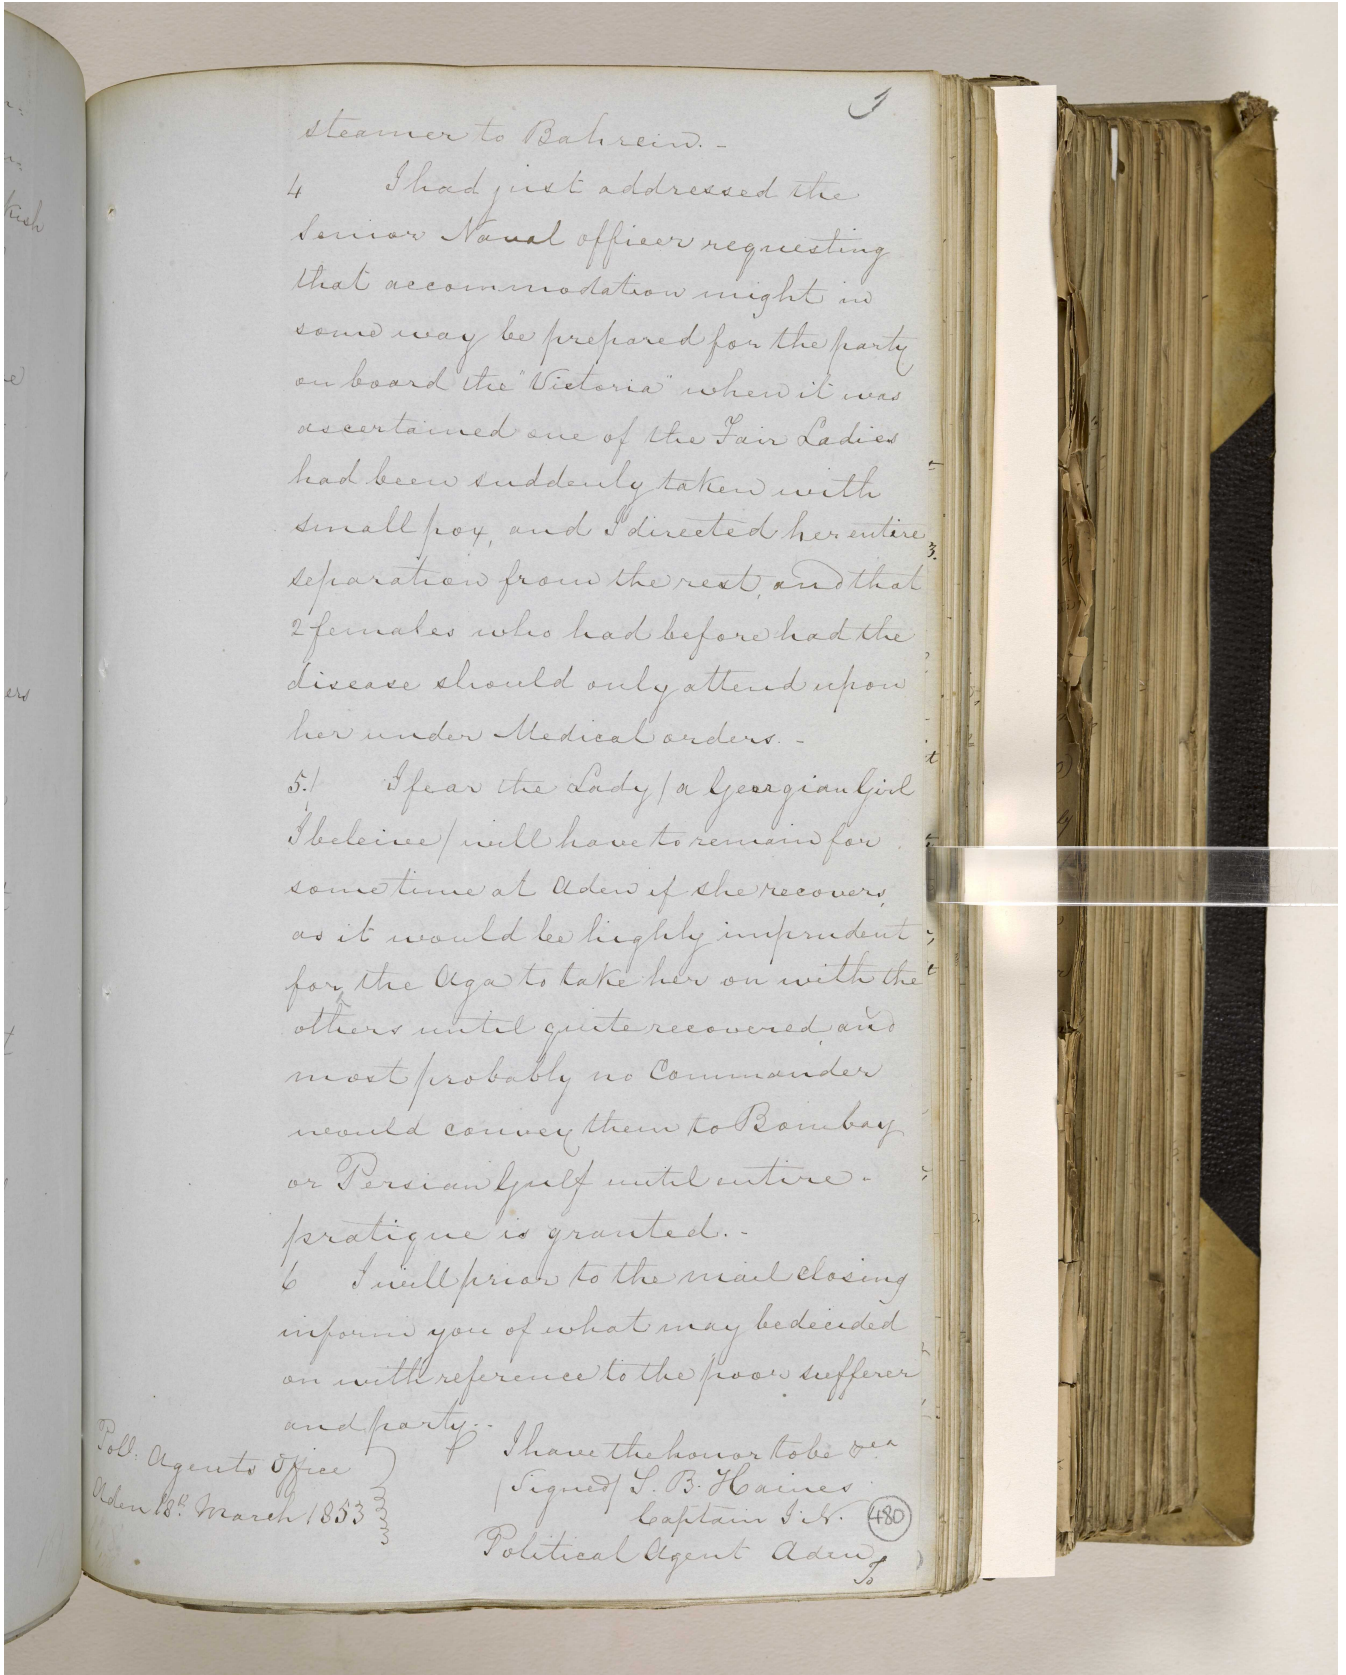 steamer to Bahrein. -
4 I had just addressed the
Senior Naval officer requesting
that accommodation might in
some way be prepared for the party
on board the "Victoria" when it was
ascertained one of the Fair Ladies
had been suddenly taken with
small pox, and I directed her entire
separation from the rest, and that
2 females who had before had the
disease should only attend upon
her under Medical orders. -
5./ I fear the Lady / a Georgian Girl
I beleive / will have to remain for
some time at Aden if she recovers,
as it would be highly imprudent
for the Aga to take her on with the
others until quite recovered, and
most probably no Commander
would convey them to Bombay
or Persian Gulf until entire -
pratique is granted. -
6 I will prior to the mail closing
inform you of what may be decided
on with reference to the poor sufferer
and party. -
Poll: Agents Office
Aden 18th March 1853
I have the honor to be &ca
/Signed/ S. B. Haines
Captain I. N.
480
Political Agent Aden
To